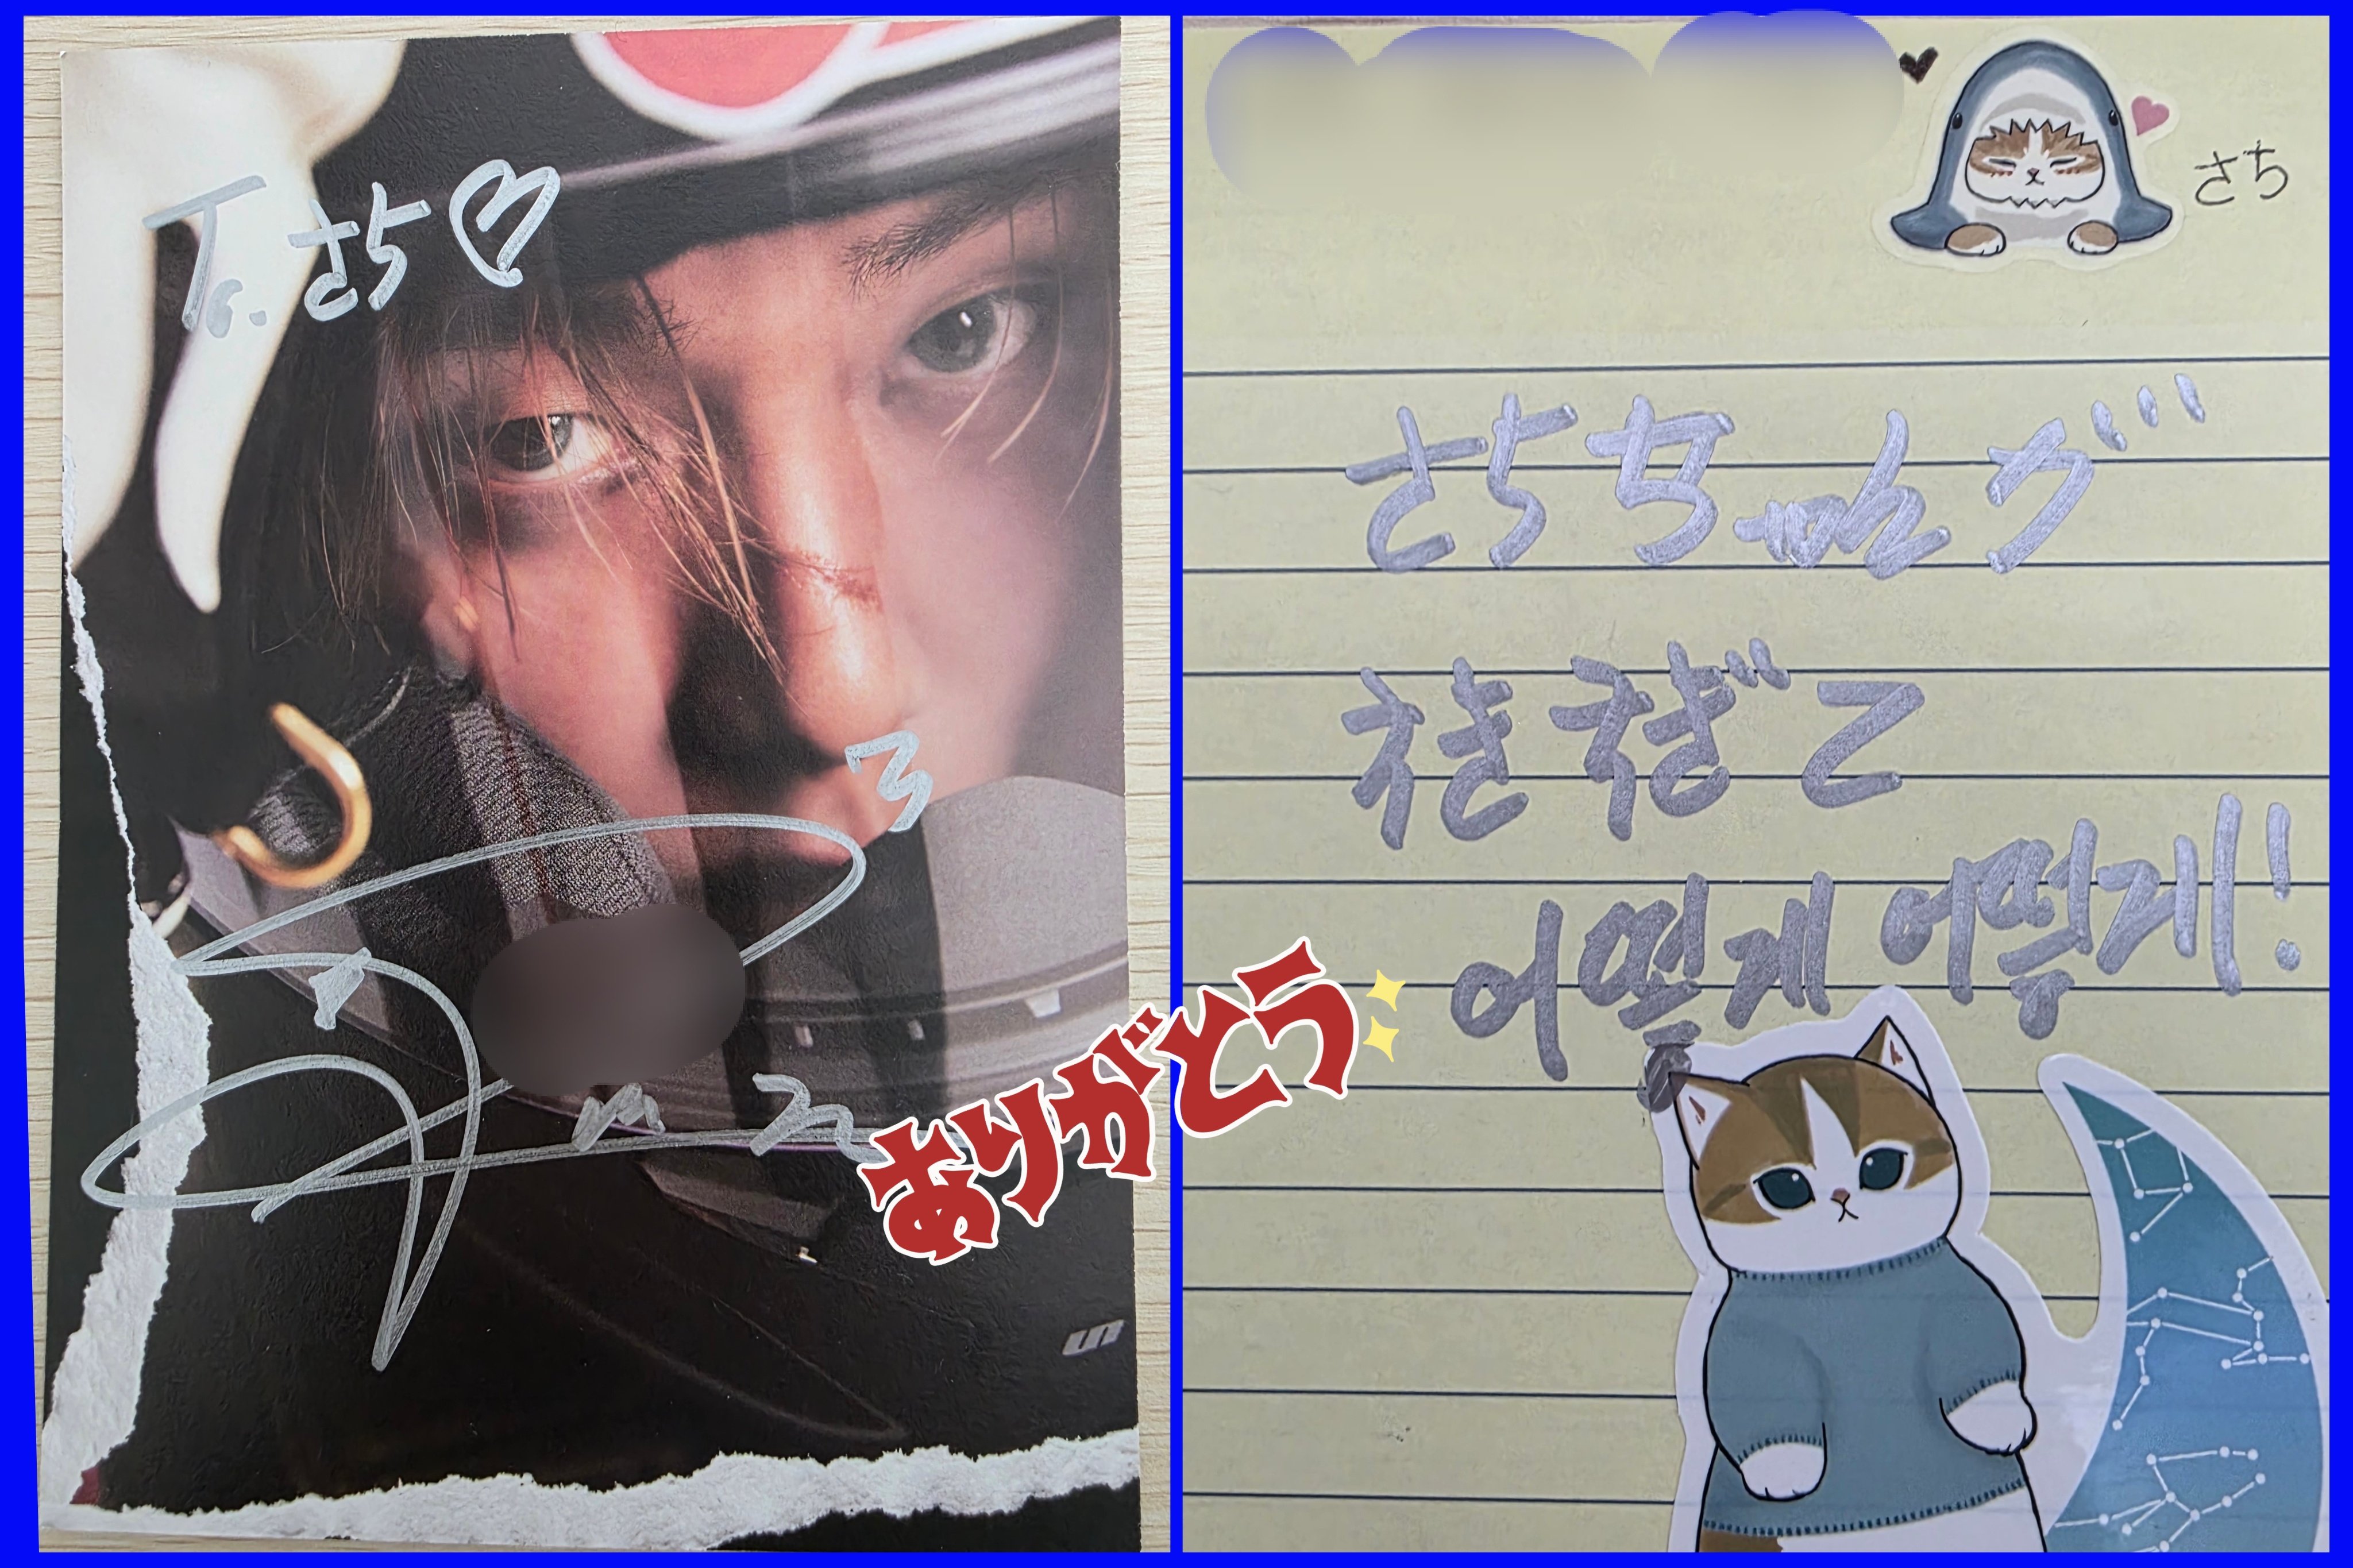 To. さち♡
ありがとう
さち
さちちゃんが
すきすぎて
어떻게 어떻게!